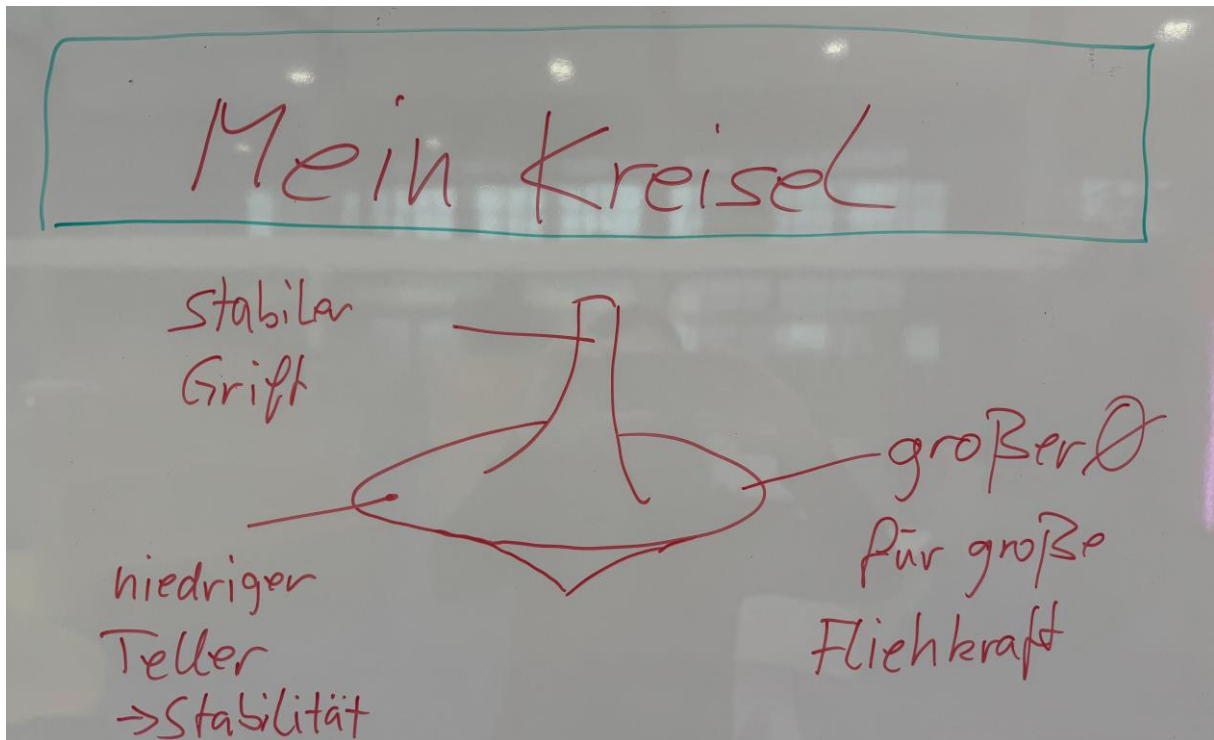 Mein Kreisel
stabiler
Griff
großer Ø
für große
Fliehkraft
niedriger
Teller
→Stabilität